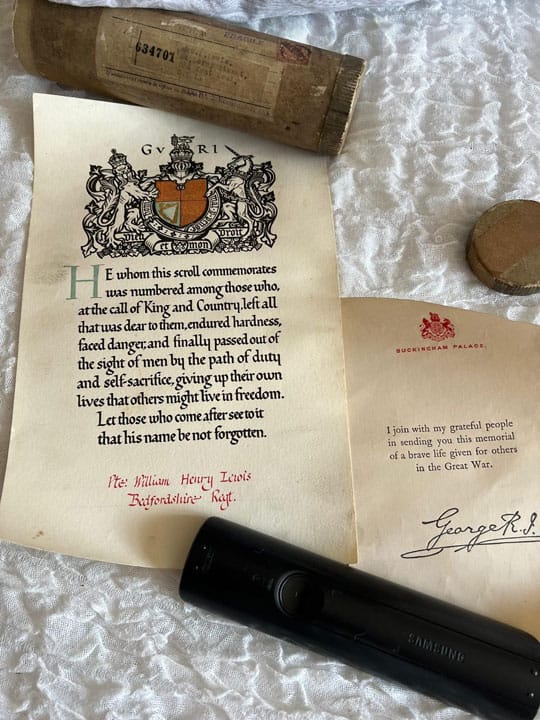 634701
GVRI
Dieu et mon Droit
HE whom this scroll commemorates
was numbered among those who,
at the call of King and Country, left all
that was dear to them, endured hardness,
faced danger, and finally passed out of
the sight of men by the path of duty
and self-sacrifice, giving up their own
lives that others might live in freedom.
Let those who come after see to it
that his name be not forgotten.
Pte. William Henry Lewis
Bedfordshire Regt.
BUCKINGHAM PALACE.
I join with my grateful people
in sending you this memorial
of a brave life given for others
in the Great War.
George R.I.
SAMSUNG